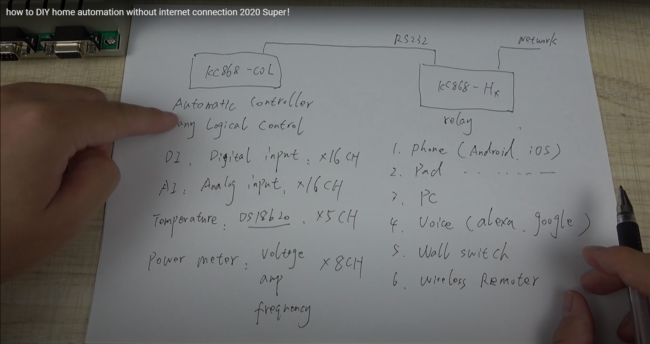 how to DIY home automation without internet connection 2020 Super!
RS232
Network
KC868-COL
KC868-Hx
Automatic Controller
any Logical Control
relay
DI. Digital input: x16 CH
AI. Analog input. x16 CH
Temperature: DS18b20. x5 CH
Power meter: voltage x8CH
amp
frequency
1. phone (Android. iOS)
2. Pad
3. PC
4. Voice (alexa. google)
5. Wall switch
6. Wireless Remoter